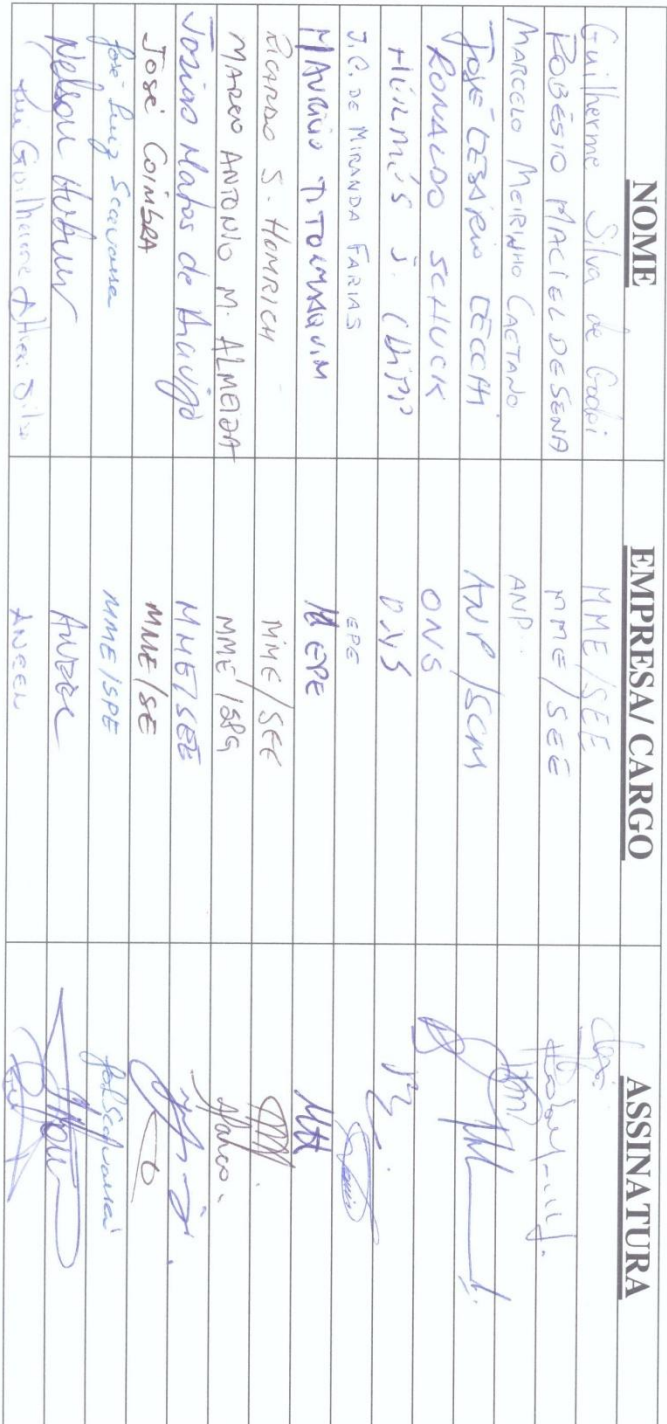 NOME EMPRESA/ CARGO ASSINATURA
Guilherme Silva de Godoi MME/SEE
ROBÉSIO MACIEL DE SENA MME/SEE
MARCELO MEIRINHO CAETANO ANP
JOSÉ CESÁRIO CECCHI ANP/SCM
RONALDO SCHUCK ONS
HERMES J. CHIPP ONS
J.C. DE MIRANDA FARIAS EPE
MAURICIO TITOLMASQUIM EPE
RICARDO S. HOMRICH MME/SEE
MARCO ANTONIO M. ALMEIDA MME/SPG
Josias Matos de Araújo MME/SEE
JOSÉ COIMBRA MME/SE
José Luiz Scavassa MME/SPE
Nelson Hubner ANEEL
Guilherme Silva ANEEL